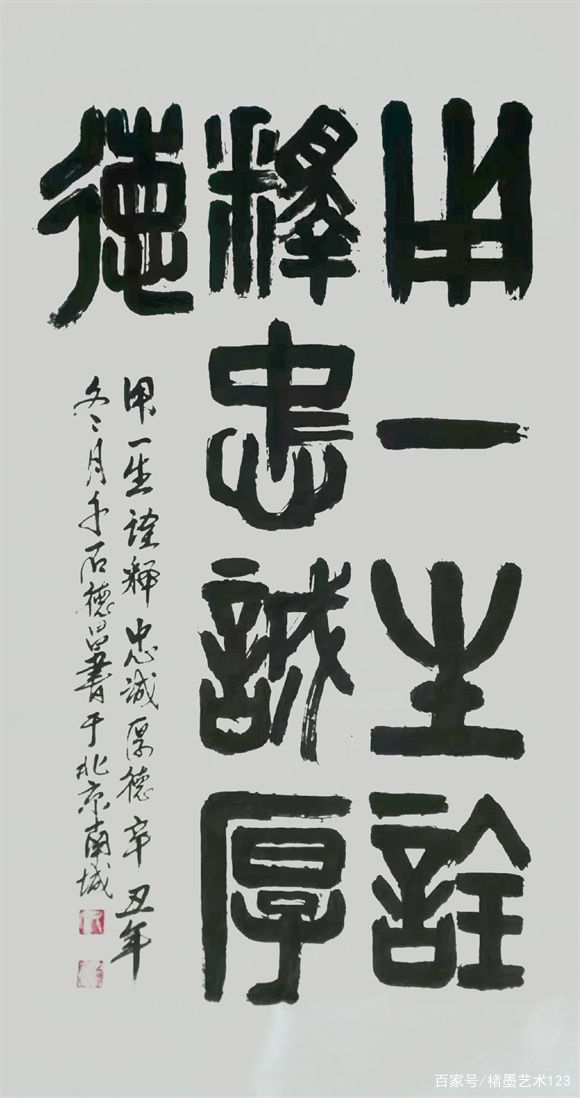 用一生詮
釋忠誠厚
德
用一生詮釋忠诚厚德辛丑年
冬月石德昌書于北京南城
百家号/楮墨艺术123